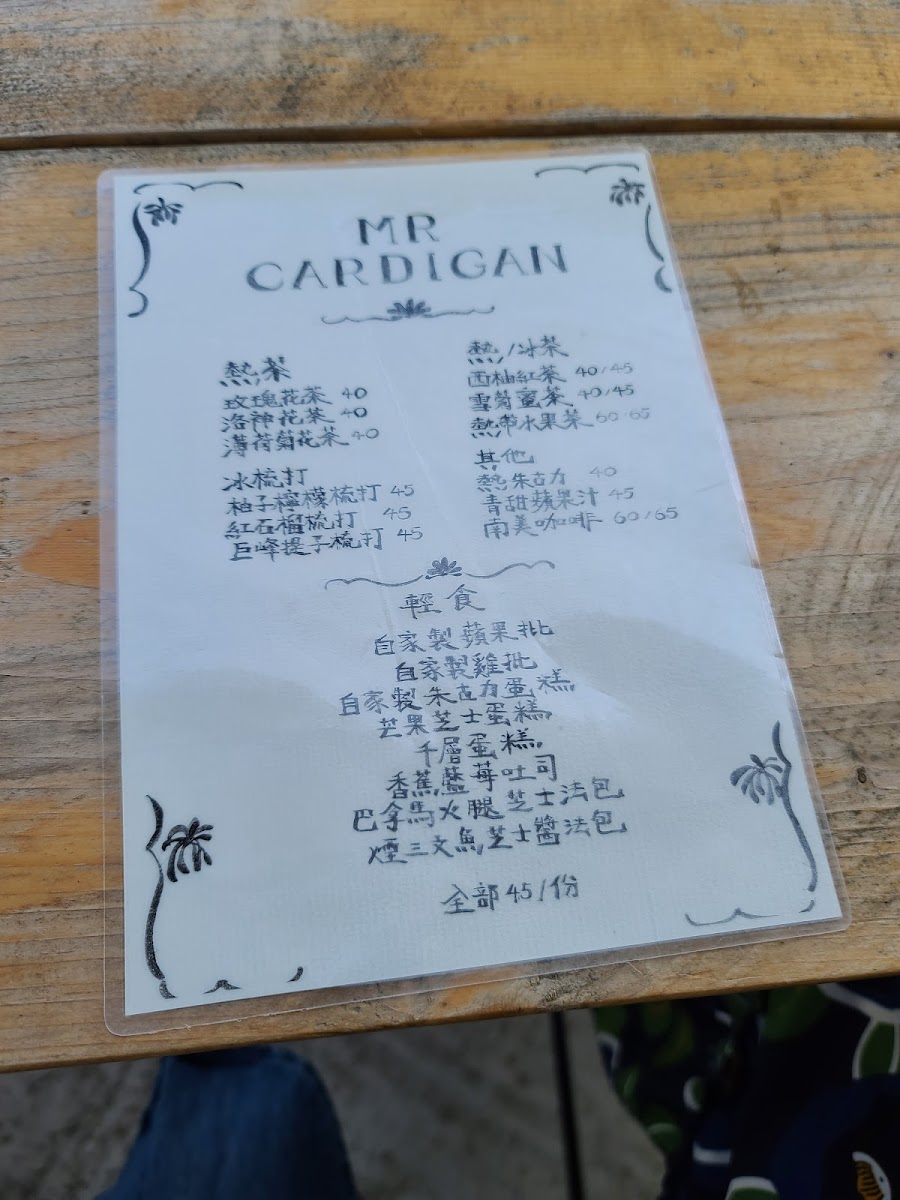 MR
CARDIGAN
熱茶
玫瑰花茶 40
洛神花茶 40
薄荷菊花茶 40
冰梳打
柚子檸檬梳打 45
紅石榴梳打 45
巨峰提子梳打 45
熱/冰茶
西柚紅茶 40/45
雪菊蜜茶 40/45
熱帶水果茶 60/65
其他
熱朱古力 40
青甜蘋果汁 45
南美咖啡 60/65
輕食
自家製蘋果批
自家製雞批
自家製朱古力蛋糕
芒果芝士蛋糕
千層蛋糕
香蕉藍莓吐司
巴拿馬火腿芝士法包
煙三文魚芝士醬法包
全部45/份